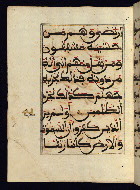 ارتضى وهم من
خشيته مشفقون
ومن يقل منهم إني إله
من دونه فذلك نجزيه
جهنم كذلك نجزي
الظالمين أولم ير
الذين كفروا أن السموت
والأرض كانتا رتقا